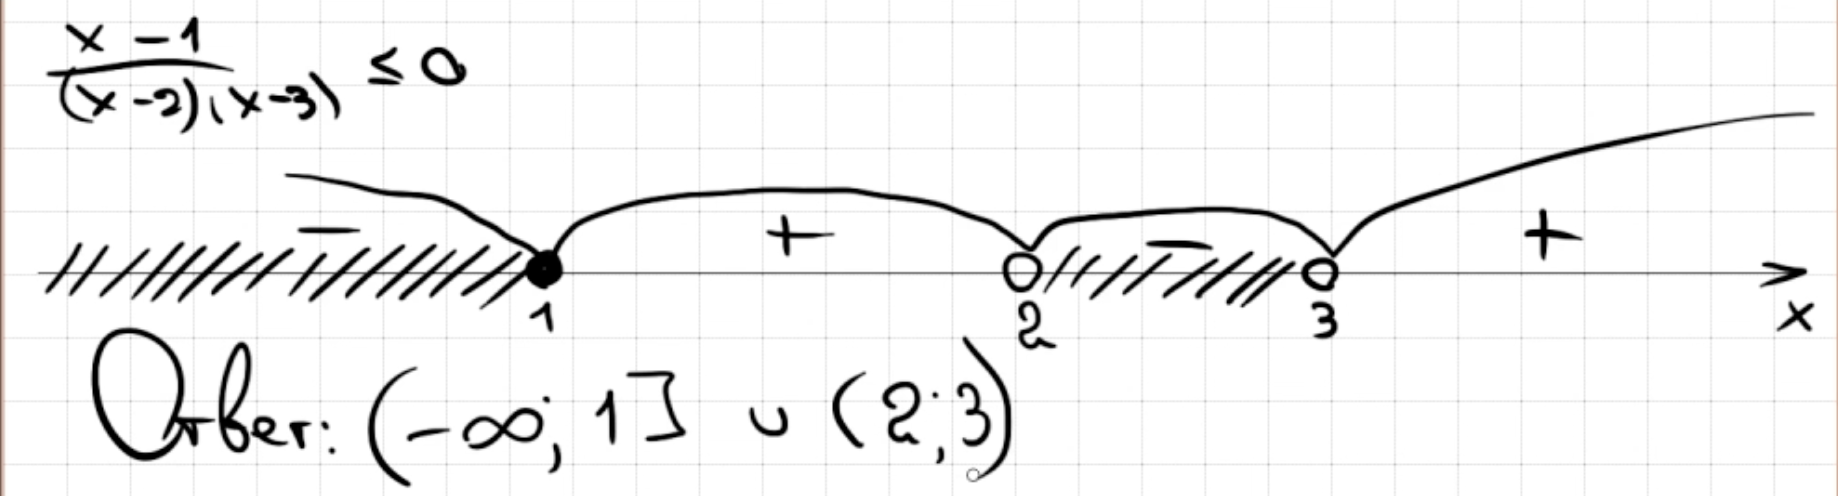 x - 1
(x-2)(x-3) ≤ 0
− + − +
1 2 3 x
Ответ: (-∞; 1] ∪ (2; 3)